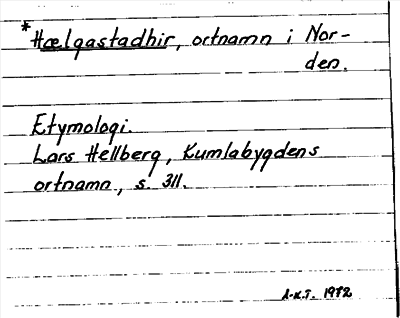 *Hælgastadhir, ortnamn i Nor-
den.
Etymologi.
Lars Hellberg, Kumlabygdens
ortnamn, s. 311.
A-K.T. 1972